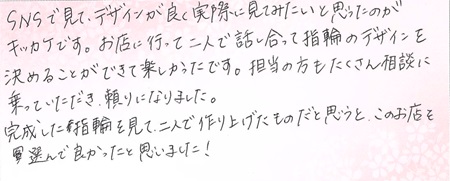 SNSで見て、デザインが良く実際に見てみたいと思ったのが
キッカケです。お店に行って二人で話し合って指輪のデザインを
決めることができて楽しかったです。担当の方もたくさん相談に
乗っていただき、頼りになりました。
完成した指輪を見て、二人で作り上げたものだと思うと、このお店を
選んで良かったと思いました!